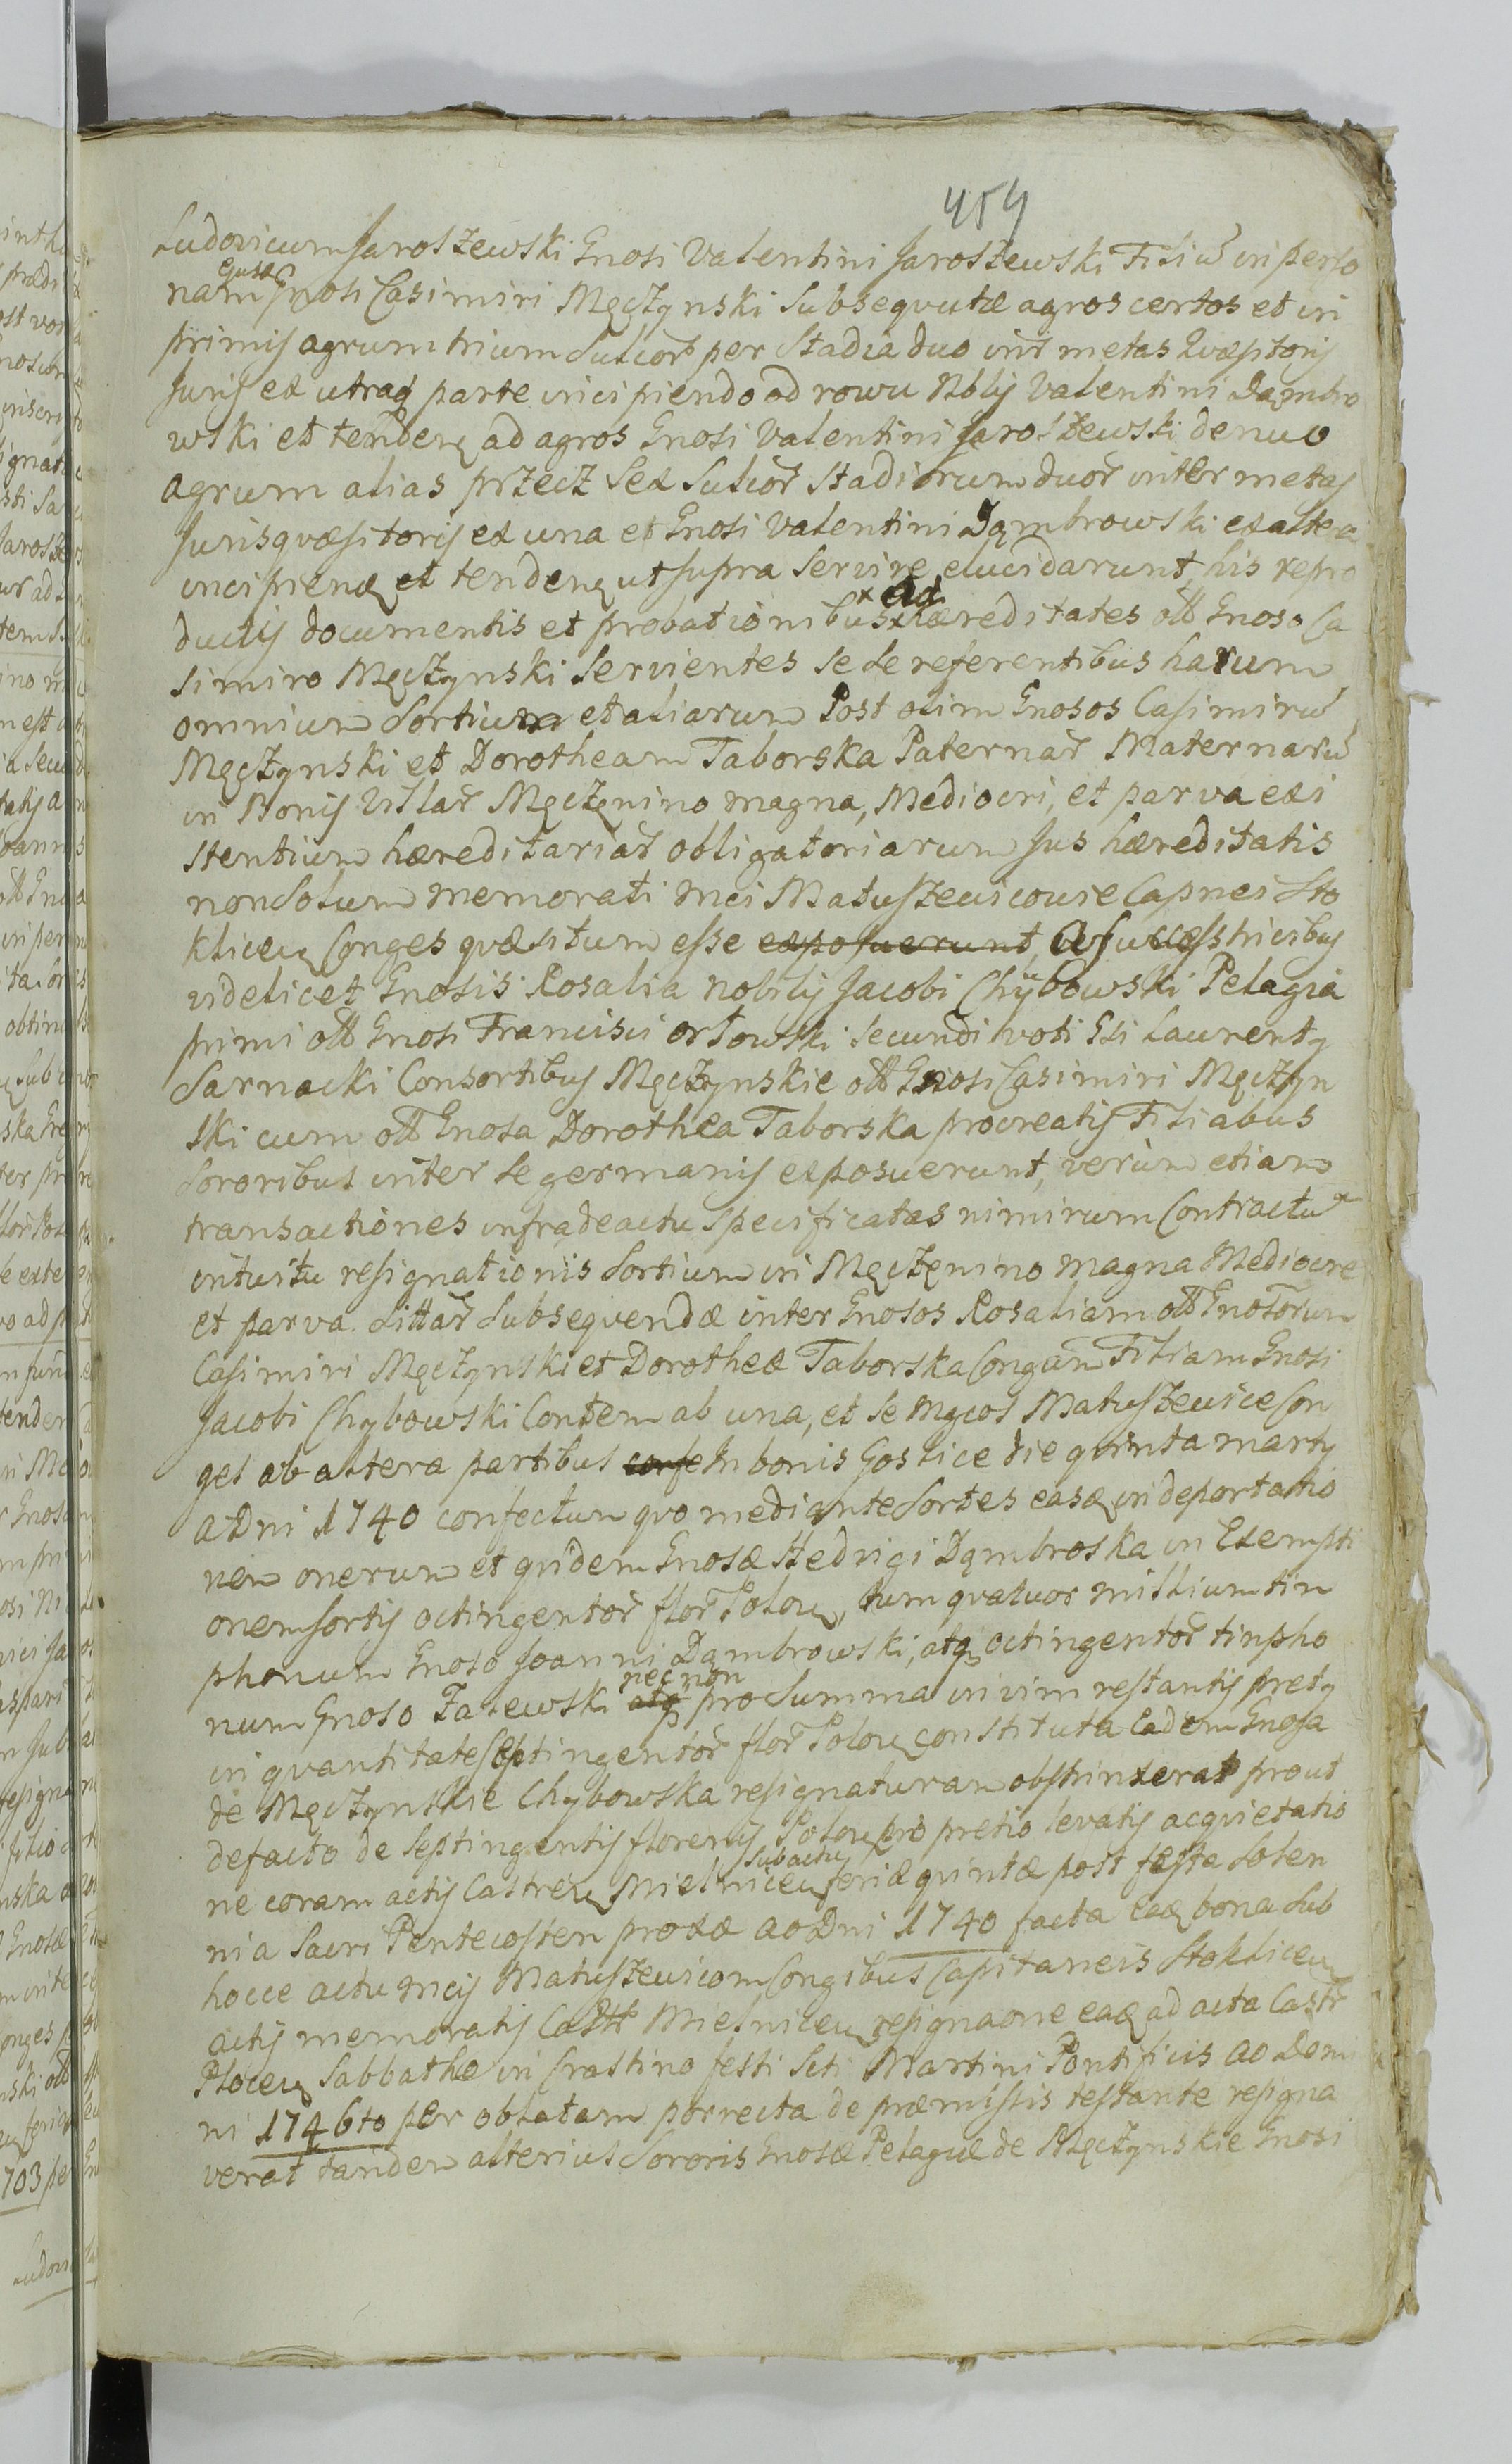 459
Ludovicum Jaroszewski Gnosi Valentini Jaroszewski Filiu in perso
nam ejusdē Gnosi Casimiri Męczynski subsequutæ agros certos et in
primis agrum trium Sulcor per Stadia duo int metas Qvæsitoris
Juris ex utraq parte incipiendo od rowu Nblis Valentini Dąmbro
wski et tenden ad agros Gnosi Valentini Jaroszewski denuo
agrum alias przecz sex Sulcor Stadiorum duor inter metas
Jurisqvæsitoris ex una et Gnosi Valentini Dąmbrowski ex altera
incipien et tenden ut supra servire elucidarunt, his repro
ductis documentis et probationibus ad hæreditates olł Gnoso Ca
simiro Męczynski servientes se se referentibus harum
omnium Sortium et aliarum Post olim Gnosos Casimiru
Męczynski et Dorotheam Taborska Paternar Maternaru
in Bonis Villar Męczenino magna, Mediocri, et parva exi
stentium hæreditariar obligatoriarum Jus hæreditatis
non solum memorati Mci Matuszewicowie Capnei Sto
klicen Conges qvæsitum esse exposuerunt, a Successtricibus
videlicet Gnosis Rosalia nobilis Jacobi Chybowski Pelagia
primi olł Gnosi Francisci Orłowski secundi voti Gsi Laurenty
Sarnacki Consortibus Męczynskie olł Gnosi Casimiri Męczyn
ski cum olł Gnosa Dorothea Taborska procreatis Filiabus
Sororibus inter se germanis exposuerunt, verum etiam
transactiones infra de actu specificatas nimirum Contractu
intuitu resignationis Sortium in Męczenino magna Mediocre
et parva sittar subsequendæ inter Gnosos Rosaliam olł Gnosorum
Casimiri Męczynski et Dorotheæ Taborska Congam Filiam Gnosi
Jacobi Chybowski Contem ab una, et se Mgcos Matuszewice Con
ges ab altera partibus confe In bonis Goslice die qvinta marty
a Dni 1740 confectum qvo mediante Sortes easq in deportatio
nem onerum et qvidem Gnosæ Hedvigi Dąmbroska in Exempti
onem Sortis octingentor flor Polon, tum qvatuor millium tin
phonum Gnoso Joanni Dąmbrowski, atq octingentor tinpho
num Gnoso Zalewski atq nec non pro Summa in vim restantis prety
in qvantitate Septingentor flor Polon constituta Eadem Gnosa
de Męczynskie Chybowska resignaturam obstrinxerat prout
de facto de septingentis florenis Polon pro pretio levatis acquietatio
ne coram actis Castren Mielnicen sub actu feriæ qvintæ post festa Solen
nia Sacri Pentecosten proxæ ao Dni 1740 facta eaq bona sub
hocce actu Mcis Matuszewicom Congibus Capitaneis Stoklicen
actis memoratis Castr Mielnicen resignaone eaq ad acta Castr
Plocen Sabbatho in Crastino festi Scti Martini Pontificis ao Domi
ni 1746to per oblatam porrecta de præmissis testante resigna
verat tandem alterius Sororis Gnosæ Pelagiæ de Męczynskie Gnosi